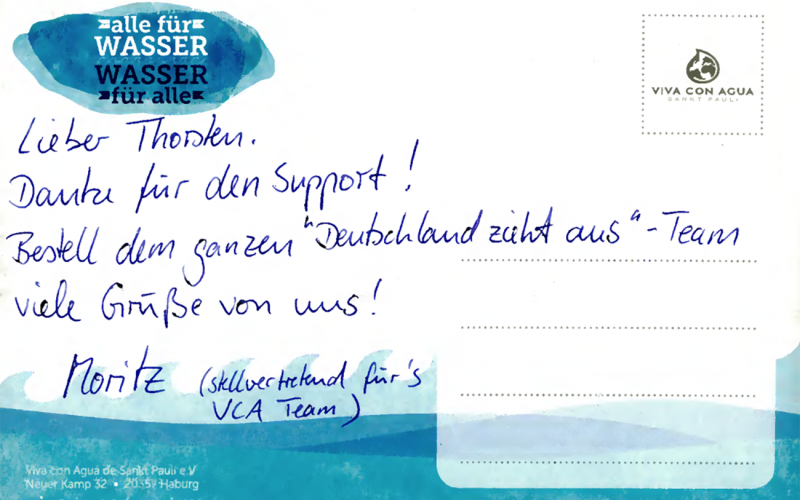 alle für
WASSER
WASSER
für alle
VIVA CON AGUA
SANKT PAULI
Lieber Thorsten.
Danke für den Support!
Bestell dem ganzen "Deutschland zieht aus"-Team
viele Grüße von uns!
Moritz (stellvertretend für's
VCA Team)
Viva con Agua de Sankt Pauli e.V
Neuer Kamp 32 • 20357 Haburg